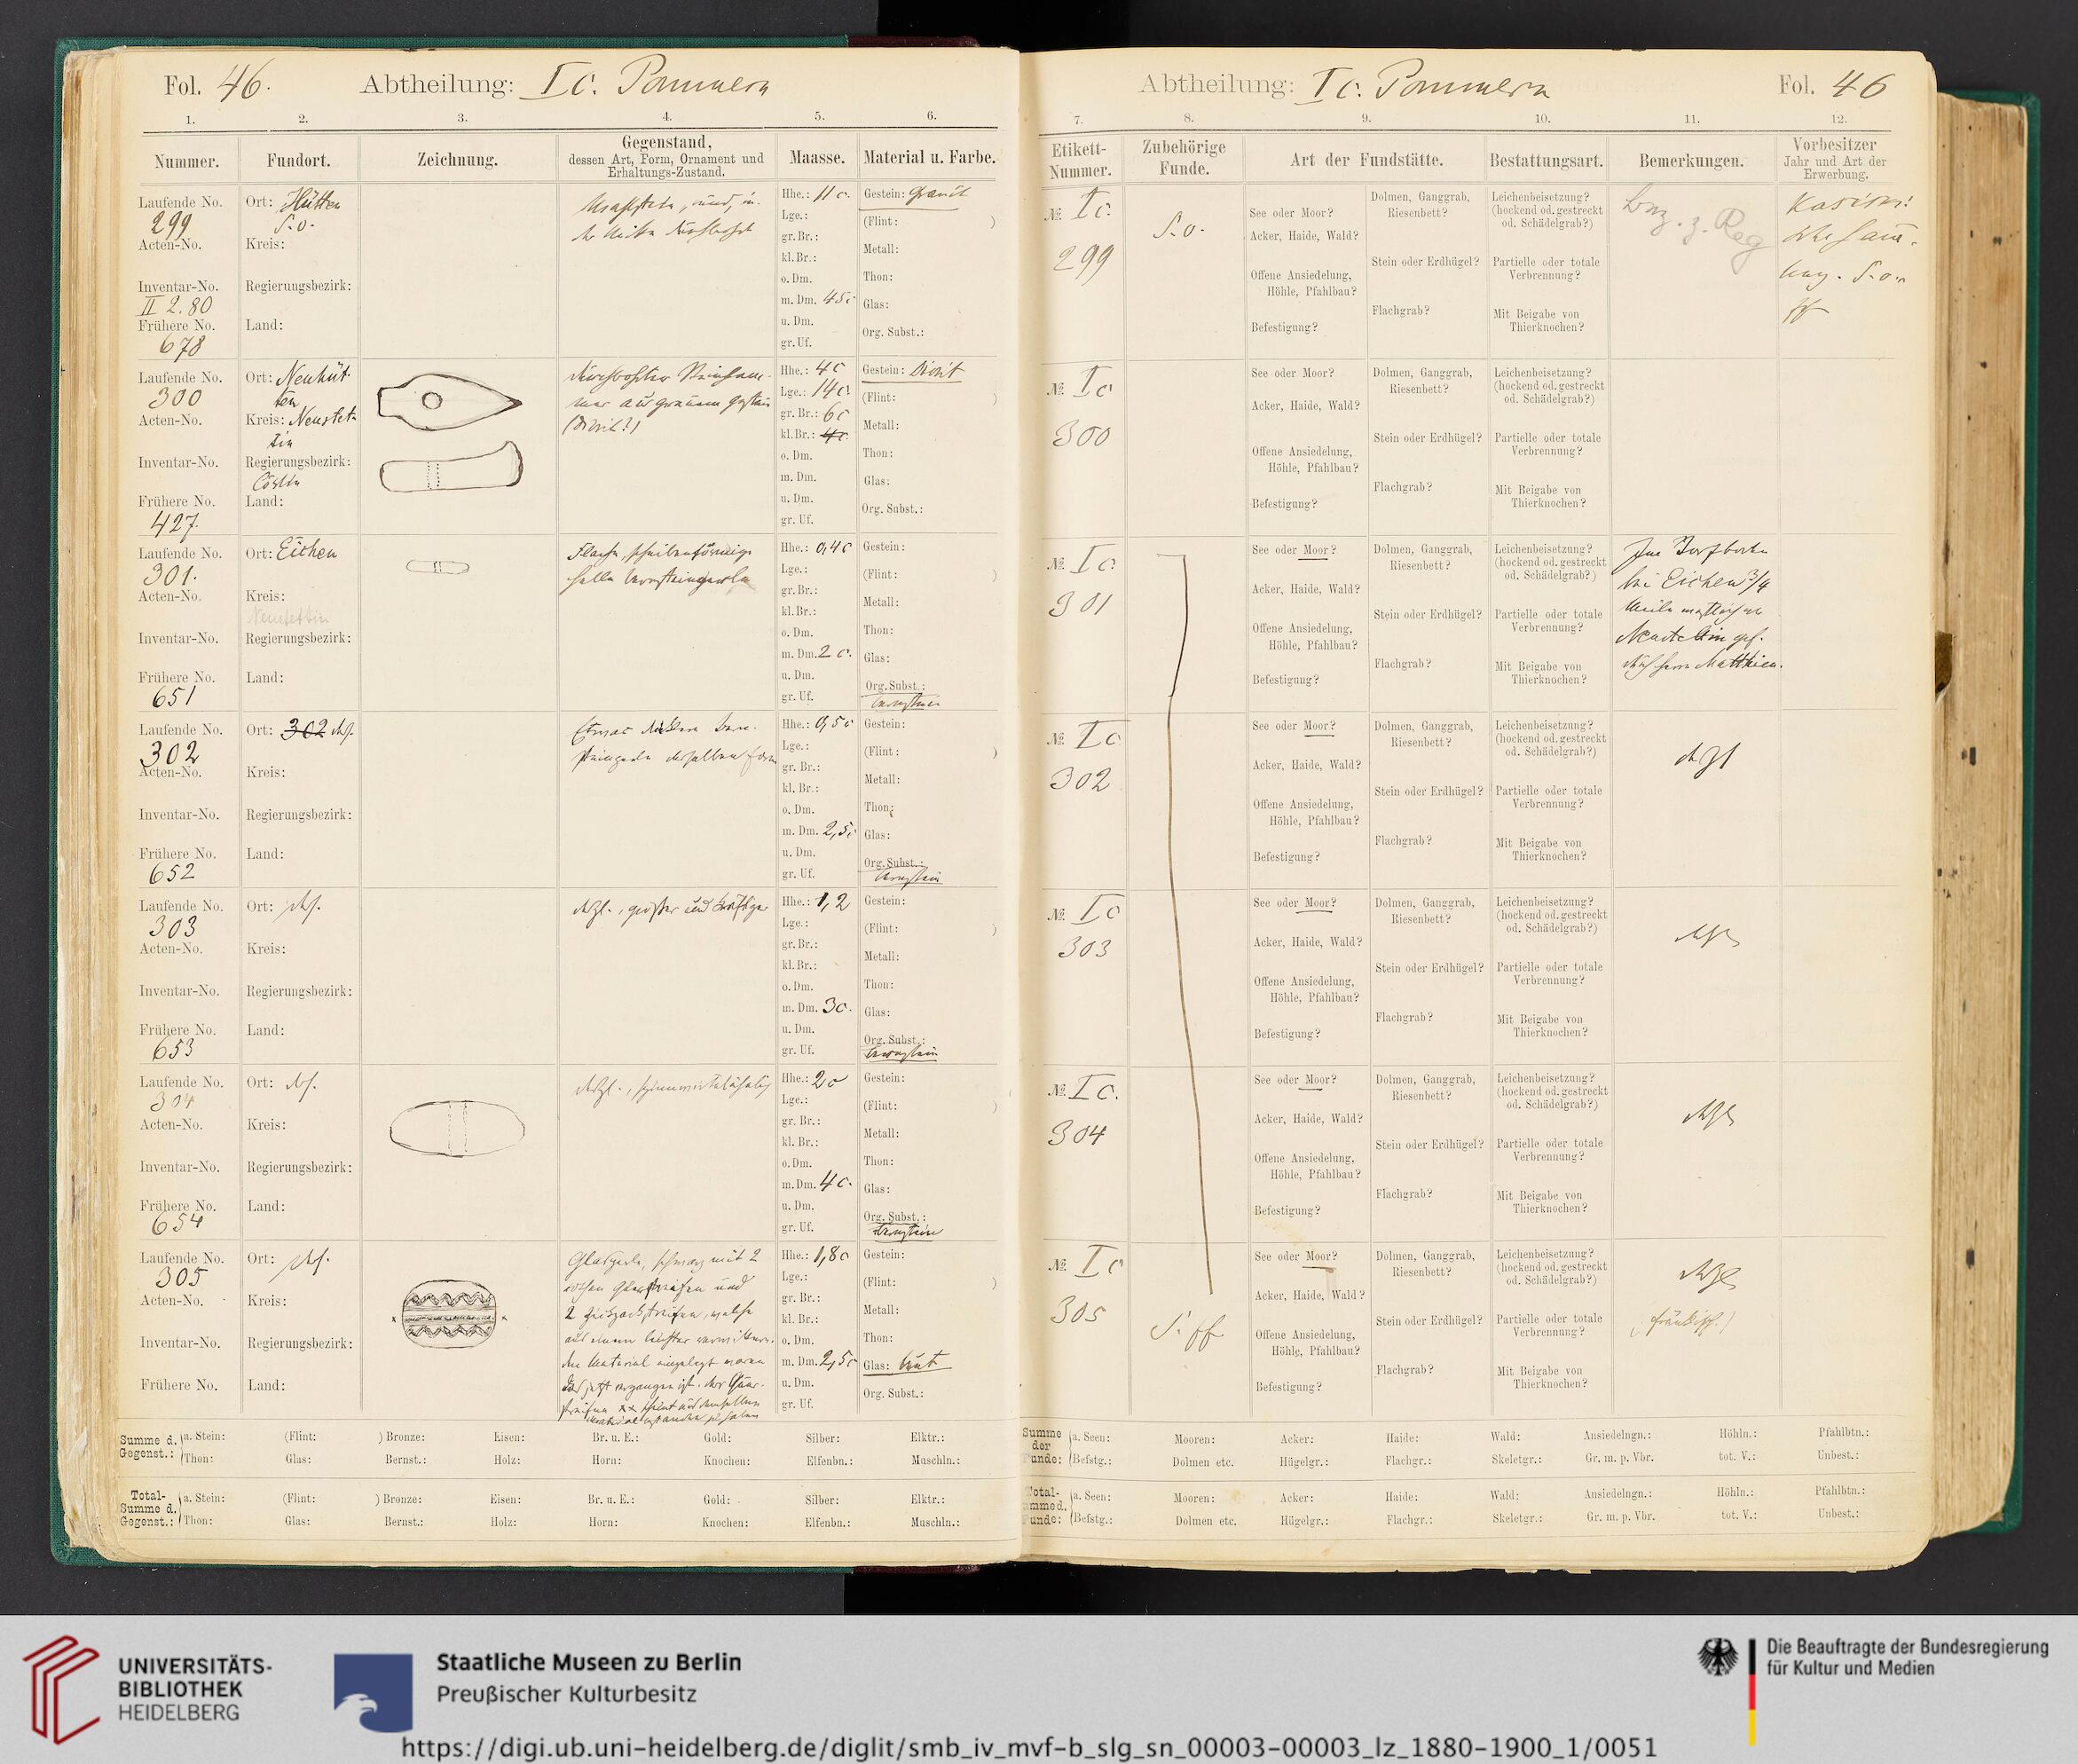 Fol. 46. Abtheilung: Ic. Pommern
1. 2. 3. 4. 5. 6.
Nummer. Fundort. Zeichnung. Gegenstand, dessen Art, Form, Ornament und Erhaltungs-Zustand. Maasse. Material u. Farbe.
Laufende No. 299
Acten-No.
Inventar-No. II 2.80
Frühere No. 678
Ort: Hütten
s. o.
Kreis:
Regierungsbezirk:
Land:
Hhe.: 11 c.
Lge.:
gr. Br.:
kl. Br.:
o. Dm.
m. Dm. 45c
u. Dm.
gr. Uf.
Gestein: Granit
(Flint: )
Metall:
Thon:
Glas:
Org. Subst.:
Laufende No. 300
Acten-No.
Inventar-No.
Frühere No. 427.
Ort: Neuhüt-
ten
Kreis: Neustet-
tin
Regierungsbezirk:
Cöslin
Land:
durchbohrter Steinham-
mer aus grauem Gestein
(Diorit?)
Hhe.: 4c
Lge.: 14c.
gr. Br.: 6c
kl. Br.: 4c.
o. Dm.
m. Dm.
u. Dm.
gr. Uf.
Gestein: Diorit
(Flint: )
Metall:
Thon:
Glas:
Org. Subst.:
Laufende No. 301.
Acten-No.
Inventar-No.
Frühere No. 651
Ort: Eichen
Kreis:
Neustettin
Regierungsbezirk:
Land:
Flache, scheibenförmige
helle Bernsteinperle
Hhe.: 0,4c
Lge.:
gr. Br.:
kl. Br.:
o. Dm.
m. Dm. 2 c.
u. Dm.
gr. Uf.
Gestein:
(Flint: )
Metall:
Thon:
Glas:
Org. Subst.:
Bernstein
Laufende No. 302
Acten-No.
Inventar-No.
Frühere No. 652
Ort: 302 dsf.
Kreis:
Regierungsbezirk:
Land:
Etwas dickere Bern-
steinperle derselben Form
Hhe.: 0,5c
Lge.:
gr. Br.:
kl. Br.:
o. Dm.
m. Dm. 2,5c
u. Dm.
gr. Uf.
Gestein:
(Flint: )
Metall:
Thon:
Glas:
Org. Subst.:
Bernstein
Laufende No. 303
Acten-No.
Inventar-No.
Frühere No. 653
Ort: dsf.
Kreis:
Regierungsbezirk:
Land:
dsgl., größer und kräftiger
Hhe.: 1,2
Lge.:
gr. Br.:
kl. Br.:
o. Dm.
m. Dm. 3c.
u. Dm.
gr. Uf.
Gestein:
(Flint: )
Metall:
Thon:
Glas:
Org. Subst.:
Bernstein
Laufende No. 304
Acten-No.
Inventar-No.
Frühere No. 654
Ort: dsf.
Kreis:
Regierungsbezirk:
Land:
dsgl., spinnwirtelähnlich
Hhe.: 2c
Lge.:
gr. Br.:
kl. Br.:
o. Dm.
m. Dm. 4c.
u. Dm.
gr. Uf.
Gestein:
(Flint: )
Metall:
Thon:
Glas:
Org. Subst.:
Bernstein
Laufende No. 305
Acten-No.
Inventar-No.
Frühere No.
Ort: dsf.
Kreis:
Regierungsbezirk:
Land:
Glasperle, schwarz mit 2
rothen Glasstreifen und
2 Zickzackstreifen, welche
aus einem leichter verwittern-
den Material eingelegt waren
das jetzt vergangen ist. der Quer-
streifen xx scheint aus demselben
Material bestanden zu haben
Hhe.: 1,8c
Lge.:
gr. Br.:
kl. Br.:
o. Dm.
m. Dm. 2,5c
u. Dm.
gr. Uf.
Gestein:
(Flint: )
Metall:
Thon:
Glas: bunt
Org. Subst.:
Summe d. Gegenst.: a. Stein: (Flint: ) Bronze: Eisen: Br. u. E.: Gold: Silber: Elktr.:
Thon: Glas: Bernst.: Holz: Horn: Knochen: Elfenbn.: Muschln.:
Total-Summe d. Gegenst.: a. Stein: (Flint: ) Bronze: Eisen: Br. u. E.: Gold: Silber: Elktr.:
Thon: Glas: Bernst.: Holz: Horn: Knochen: Elfenbn.: Muschln.:
Abtheilung: Ic. Pommern Fol. 46
7. 8. 9. 10. 11. 12.
Etikett-Nummer. Zubehörige Funde. Art der Fundstätte. Bestattungsart. Bemerkungen. Vorbesitzer Jahr und Art der Erwerbung.
№ Ic.
299
s. o.
See oder Moor?
Acker, Haide, Wald?
Offene Ansiedelung, Höhle, Pfahlbau?
Befestigung?
Dolmen, Ganggrab, Riesenbett?
Stein oder Erdhügel?
Flachgrab?
Leichenbeisetzung? (hockend od. gestreckt od. Schädelgrab?)
Partielle oder totale Verbrennung?
Mit Beigabe von Thierknochen?
Kasiski
s. o.
№ Ic
300
See oder Moor?
Acker, Haide, Wald?
Offene Ansiedelung, Höhle, Pfahlbau?
Befestigung?
Dolmen, Ganggrab, Riesenbett?
Stein oder Erdhügel?
Flachgrab?
Leichenbeisetzung? (hockend od. gestreckt od. Schädelgrab?)
Partielle oder totale Verbrennung?
Mit Beigabe von Thierknochen?
№ Ic
301
See oder Moor?
Acker, Haide, Wald?
Offene Ansiedelung, Höhle, Pfahlbau?
Befestigung?
Dolmen, Ganggrab, Riesenbett?
Stein oder Erdhügel?
Flachgrab?
Leichenbeisetzung? (hockend od. gestreckt od. Schädelgrab?)
Partielle oder totale Verbrennung?
Mit Beigabe von Thierknochen?
Im Torfbruch
bei Eichen 3/4
Meile westlich von
Neustettin gef.
durch Herrn Matthieu.
№ Ic
302
See oder Moor?
Acker, Haide, Wald?
Offene Ansiedelung, Höhle, Pfahlbau?
Befestigung?
Dolmen, Ganggrab, Riesenbett?
Stein oder Erdhügel?
Flachgrab?
Leichenbeisetzung? (hockend od. gestreckt od. Schädelgrab?)
Partielle oder totale Verbrennung?
Mit Beigabe von Thierknochen?
dsgl
№ Ic
303
See oder Moor?
Acker, Haide, Wald?
Offene Ansiedelung, Höhle, Pfahlbau?
Befestigung?
Dolmen, Ganggrab, Riesenbett?
Stein oder Erdhügel?
Flachgrab?
Leichenbeisetzung? (hockend od. gestreckt od. Schädelgrab?)
Partielle oder totale Verbrennung?
Mit Beigabe von Thierknochen?
dsgl
№ Ic.
304
See oder Moor?
Acker, Haide, Wald?
Offene Ansiedelung, Höhle, Pfahlbau?
Befestigung?
Dolmen, Ganggrab, Riesenbett?
Stein oder Erdhügel?
Flachgrab?
Leichenbeisetzung? (hockend od. gestreckt od. Schädelgrab?)
Partielle oder totale Verbrennung?
Mit Beigabe von Thierknochen?
dsgl
№ Ic
305
s. ff
See oder Moor?
Acker, Haide, Wald?
Offene Ansiedelung, Höhle, Pfahlbau?
Befestigung?
Dolmen, Ganggrab, Riesenbett?
Stein oder Erdhügel?
Flachgrab?
Leichenbeisetzung? (hockend od. gestreckt od. Schädelgrab?)
Partielle oder totale Verbrennung?
Mit Beigabe von Thierknochen?
dsgl
(fränkisch.)
Summe der Funde: a. Seen: Mooren: Acker: Haide: Wald: Ansiedelngn.: Höhln.: Pfahlbtn.:
Befstg.: Dolmen etc. Hügelgr.: Flachgr.: Skeletgr.: Gr. m. p. Vbr. tot. V.: Unbest.:
Total-Summe d. Funde: a. Seen: Mooren: Acker: Haide: Wald: Ansiedelngn.: Höhln.: Pfahlbtn.:
Befstg.: Dolmen etc. Hügelgr.: Flachgr.: Skeletgr.: Gr. m. p. Vbr. tot. V.: Unbest.:
UNIVERSITÄTS-
BIBLIOTHEK
HEIDELBERG
Staatliche Museen zu Berlin
Preußischer Kulturbesitz
Die Beauftragte der Bundesregierung
für Kultur und Medien
https://digi.ub.uni-heidelberg.de/diglit/smb_iv_mvf-b_slg_sn_00003-00003_lz_1880-1900_1/0051